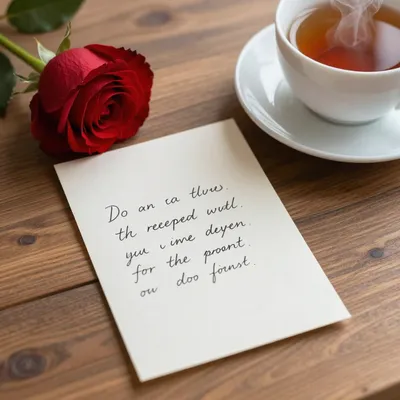 Do an ca tluw.
th receped wutl.
you ime deyen.
for the proant.
ou doo fornst.